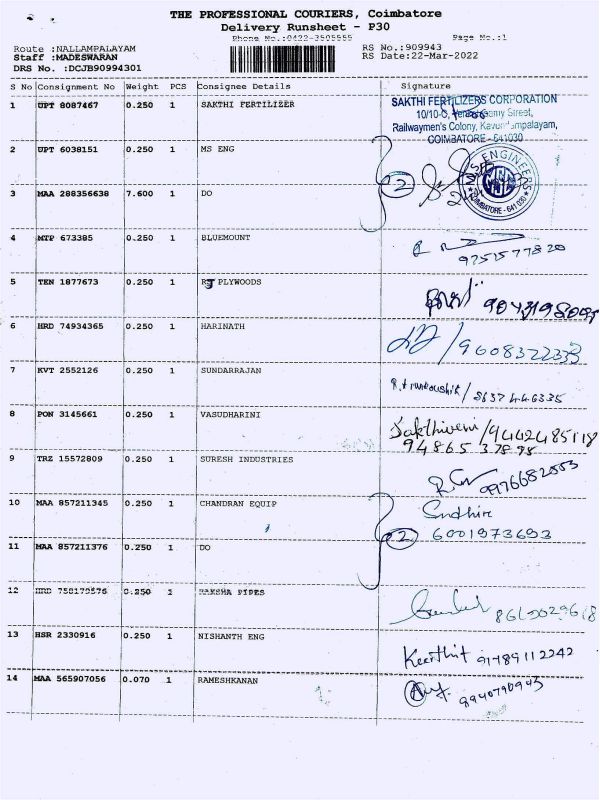 THE PROFESSIONAL COURIERS, Coimbatore
Delivery Runsheet - P30
Phone No.:0422-3505555 Page No.:1
Route :NALLAMPALAYAM RS No.:909943
Staff :MADESWARAN RS Date:22-Mar-2022
DRS No. :DCJB90994301
S No Consignment No Weight PCS Consignee Details Signature
1 UPT 8087467 0.250 1 SAKTHI FERTILIZER
SAKTHI FERTILIZERS CORPORATION
Street,
Railwaymen's Colony,
COIMBATORE - 641030
2 UPT 6038151 0.250 1 MS ENG
2
ENGINEERS
COIMBATORE - 641 030
3 MAA 288356638 7.600 1 DO
4 MTP 673385 0.250 1 BLUEMOUNT
9751577820
5 TEN 1877673 0.250 1 RJ PLYWOODS
6 HRD 74934365 0.250 1 HARINATH
7 KVT 2552126 0.250 1 SUNDARRAJAN
8637446335
8 PON 3145661 0.250 1 VASUDHARINI
Sakthiveni/9442485118
94865 37898
9 TRZ 15572809 0.250 1 SURESH INDUSTRIES
10 MAA 857211345 0.250 1 CHANDRAN EQUIP
2 6001973693
11 MAA 857211376 0.250 1 DO
12 HRD 758179576 0.250 1 RAKSHA PIPES
13 HSR 2330916 0.250 1 NISHANTH ENG
Keerthit
14 MAA 565907056 0.070 1 RAMESHKANAN
8940790943